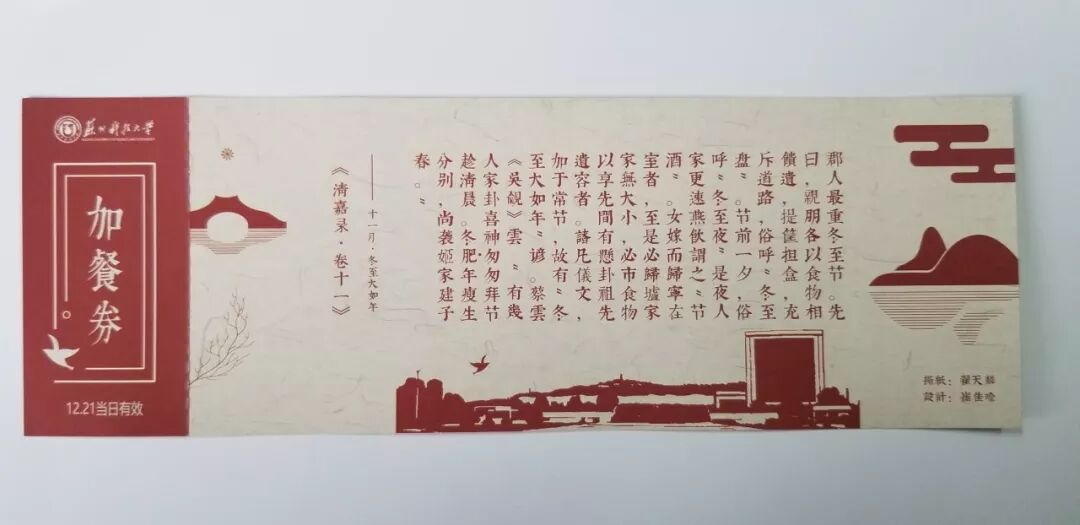 苏州科技大学
加餐券
12.21当日有效
郡人最重冬至节。先
日，親朋各以食物相
饋遺，提筐担盒，充
斥道路，俗呼“冬至
盘”。节前一夕，俗
呼“冬至夜”是夜人
家更速燕飲謂之“节
酒”。女嫁而歸寧在
室者，至是必歸墟家
家無大小，必市食物
以享先間有懸卦祖先
遺容者。諸凡儀文，
加于常节，故有“冬
至大如年”諺。蔡雲
《吳覜》雲“有幾
人家卦喜神，匆匆拜节
趁清晨。冬肥年瘦生
分别，尚袭姬家建子
春。”
——十一月·冬至大如年
《清嘉录·卷十一》
撕紙：翟天麟
設計：崔佳唅